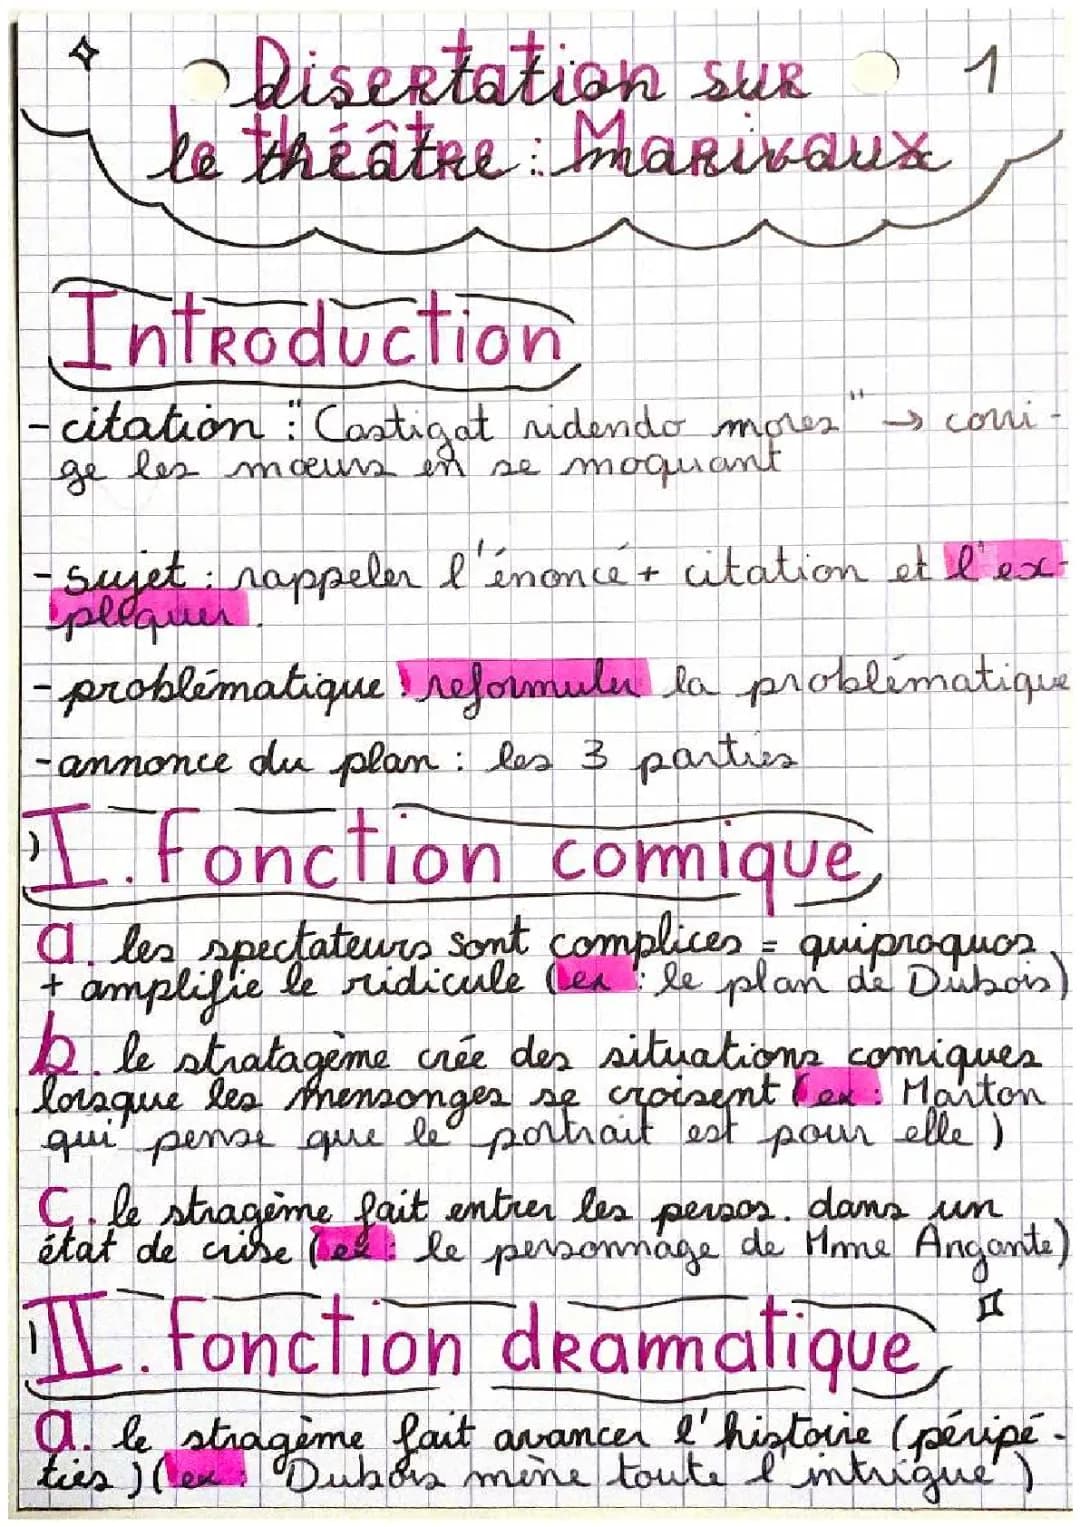 Disertation sur 1
le théâtre : Marivaux
Introduction
- citation : "Castigat ridendo mores" → corri-
ge les mœurs en se moquant
- sujet : rappeler l'énoncé + citation et l'ex-
pliquer.
- problématique : reformuler la problématique
- annonce du plan : les 3 parties
I. Fonction comique
a. les spectateurs sont complices = quiproquos
+ amplifie le ridicule (ex : le plan de Dubois)
b. le stratagème crée des situations comiques
lorsque les mensonges se croisent (ex : Marton
qui pense que le portrait est pour elle)
c. le stragème fait entrer les persos. dans un
état de crise (ex : le personnage de Mme Argante)
II. Fonction dramatique
a. le stragème fait avancer l'histoire (péripé-
ties) (ex : Dubois mène toute l'intrigue)